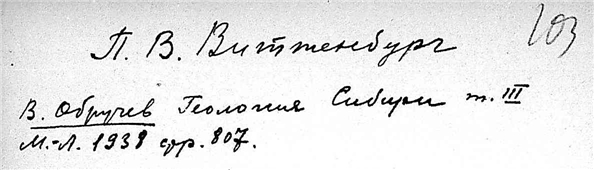 П. В. Виттенбург
103
В. Обручев Геология Сибири т. III
М.-Л. 1938 стр. 807.